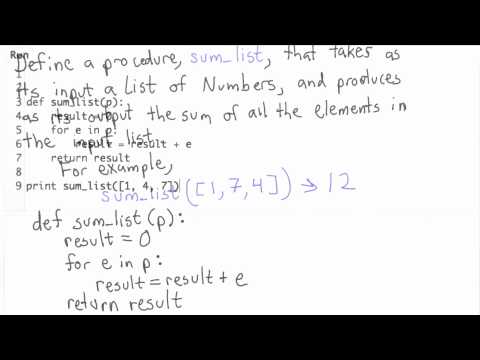 Run
Define a procedure, sum_list, that takes as
its input a List of Numbers, and produces
as its output the sum of all the elements in
the input list.
For example,
sum_list([1,7,4]) → 12
1
2
3 def sum_list(p):
4 result = 0
5 for e in p:
6 result = result + e
7 return result
8
9 print sum_list([1, 4, 7])
def sum_list(p):
result = 0
for e in p:
result = result + e
return result